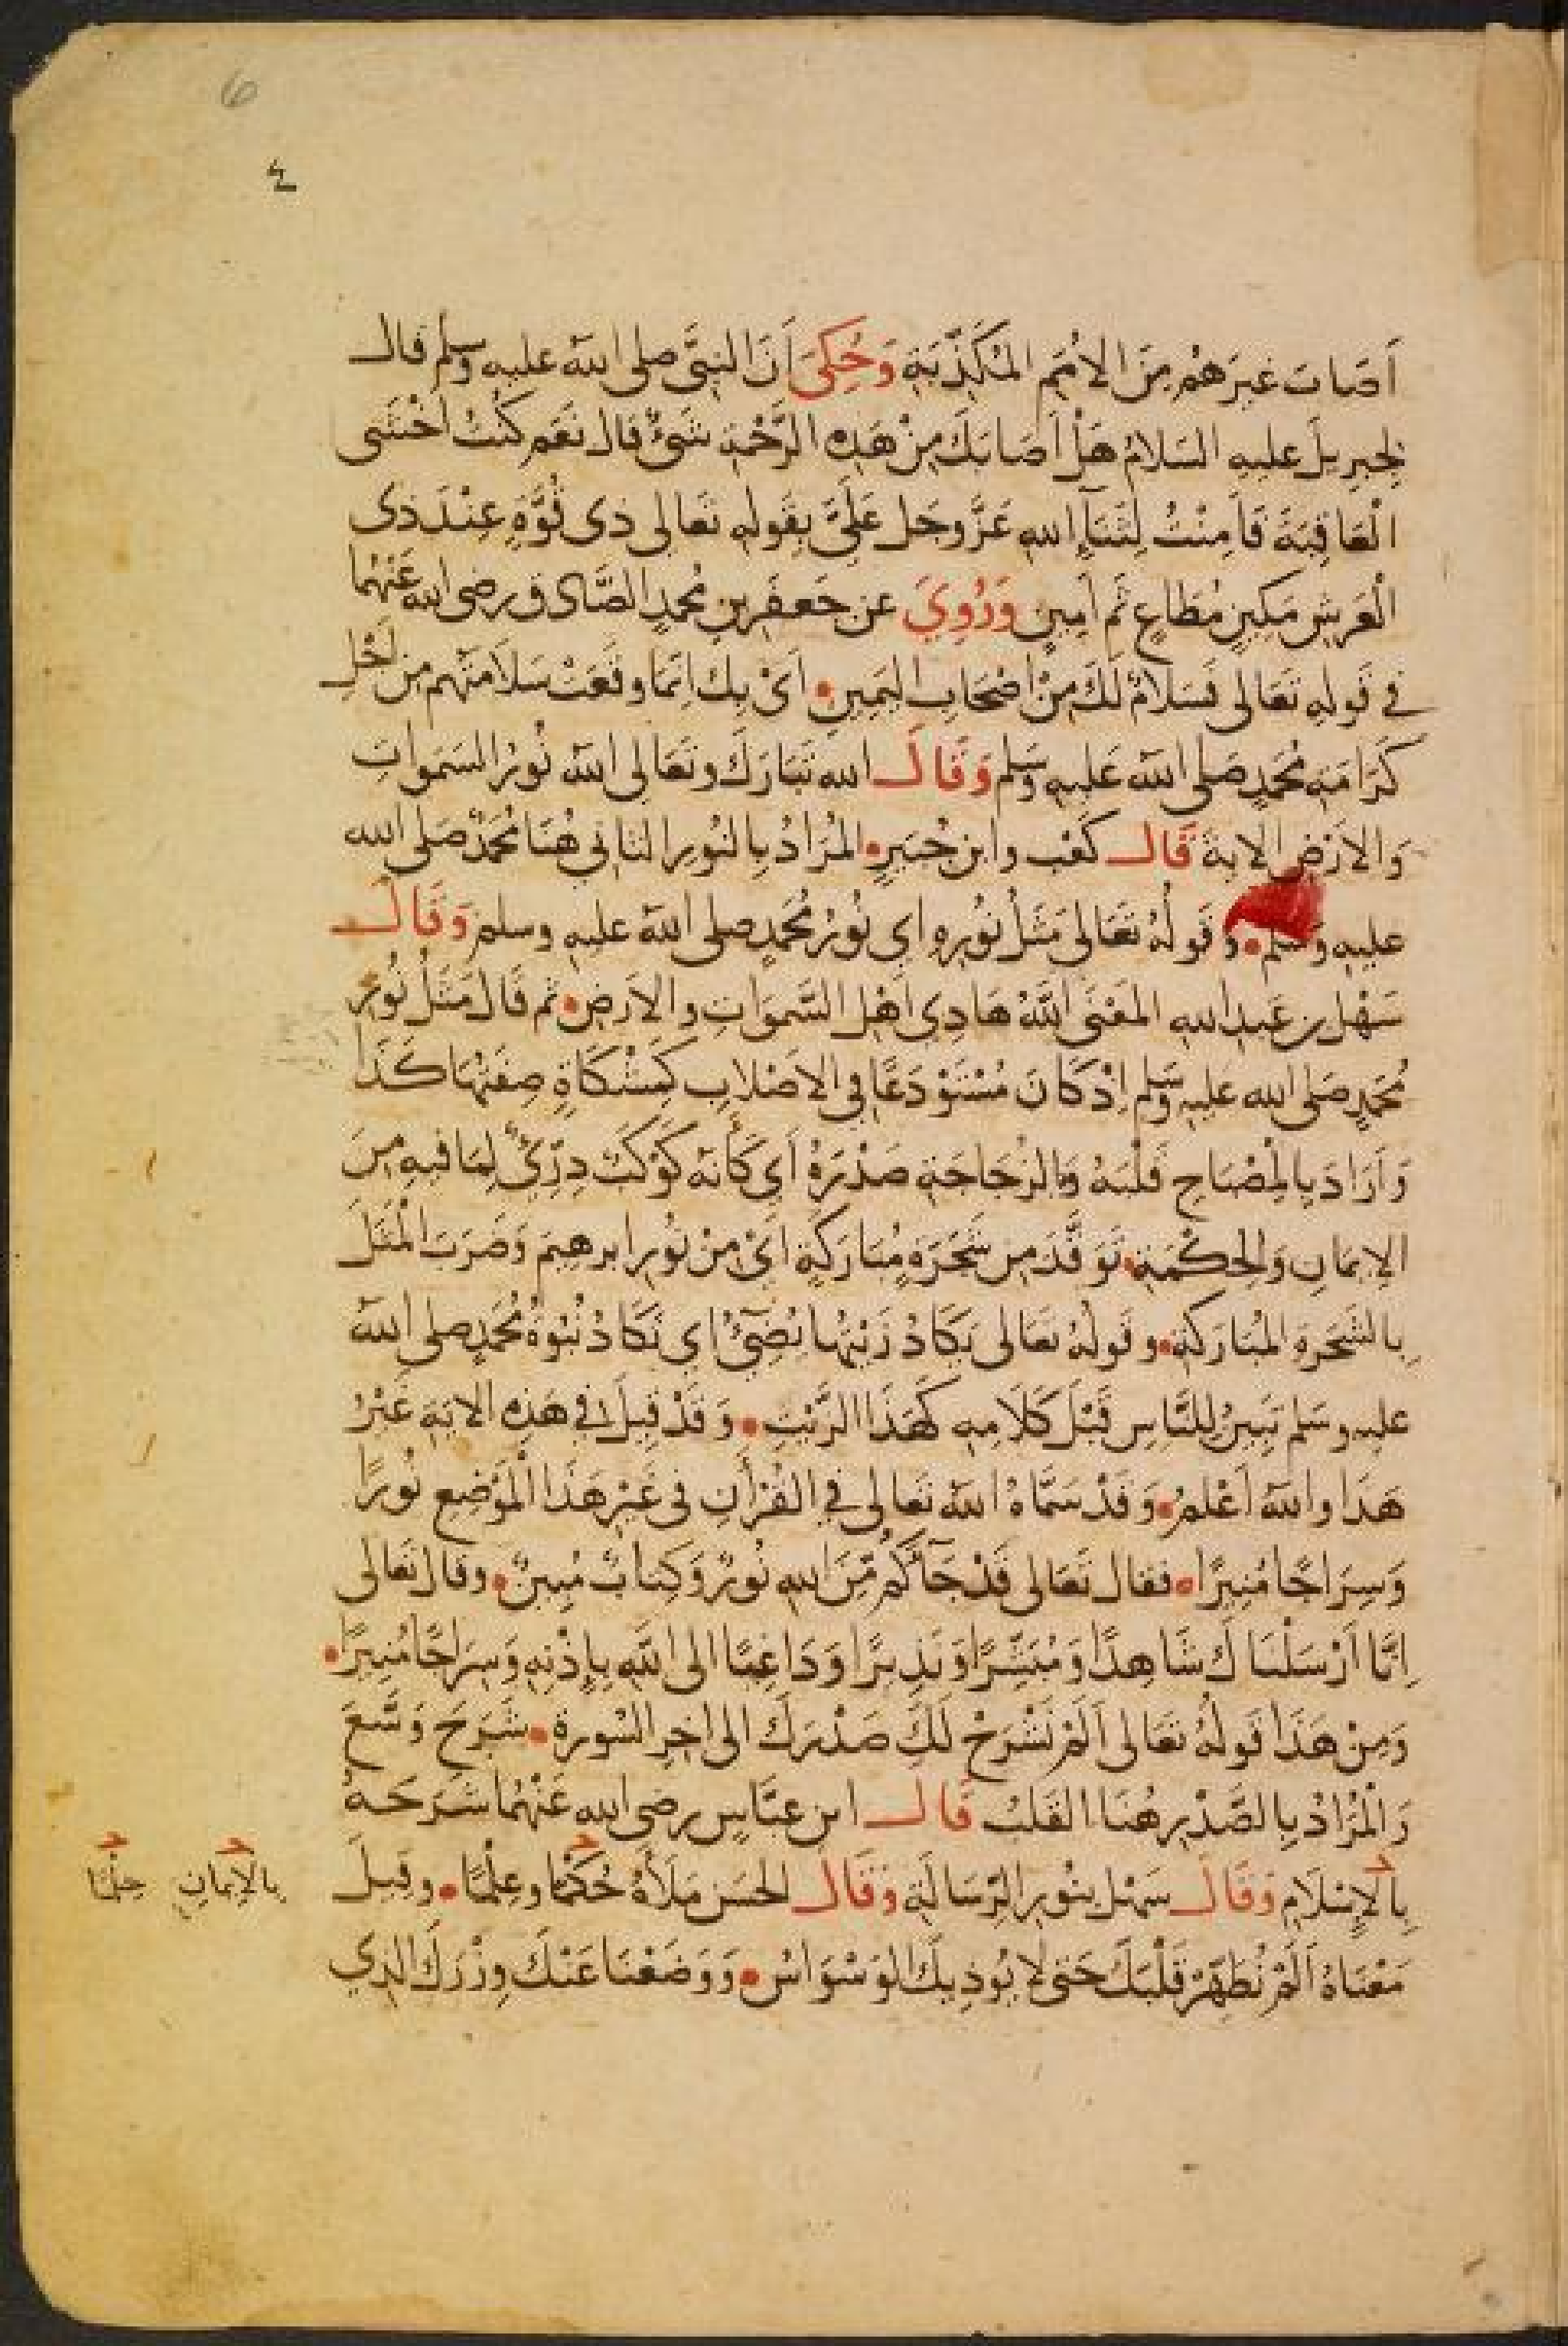 6
٤
أَصَابَ غيرَهُمْ مِنَ الاُمَمِ المُكَذِّبَةِ وَحُكِىَ أَنَّ النبىَّ صلى الله عليه وسلم قال
لِجبرِيلَ عليه السَلامُ هَلْ أَصَابَكَ مِنْ هَذِه الرَّحْمَةِ شَىْءٌ قال نَعَم كُنْتُ أَخْشَى
الْعَاقِبَةَ فَأمِنْتُ لِثَنَآءِ الله عَزَّ وجَل عَلَىَّ بِقَولِه تَعَالى ذى قُوَّةٍ عِنْدَ ذى
الْعَرشِ مَكِينٍ مُطَاعٍ ثَمَ أَمِينٍ وَرُوِيَ عن جَعفَرِ بنِ مُحمدٍ الصَّادق رضى الله عَنْهُما
في قَولِهِ تَعَالى فَسَلامٌ لَكَ مِنْ أصْحَابِ اليَمِينِ أَىْ بِكَ اِنَمَا وقَعَتْ سَلاَمَتُهم مِن أَجْلِ
كَرَامَةِ مُحَمَدٍ صَلى الله عَليهِ وسَلم وَقَالَ الله تَبَارَكَ وتَعَالى اللهُ نُورُ السَمَواتِ
وَالاَرْضِ الاية قَال كَعْب وابن جُبَيرٍ المُرَادُ بِالنُورِ الثاني هُنَا مُحَمَدٌ صَلى الله
عليه وَسلم وقَولُهُ تَعَالى مَثَلُ نُورِهِ اي نُورُ مُحَمَدٍ صلى الله عليه وسلم وَقَالَ
سَهْل بن عَبدالله المَعْنَى اَللَّهُ هَادِي أَهْلِ السَّمَوَاتِ والاَرضِ ثم قَالَ مَثَلُ نُورِ
مُحَمدٍ صَلى الله عَليه وسَلم اِذ كَانَ مُسْتَوْدَعًا في الاَصْلابِ كَمِشْكَاةٍ صِفَتُهَا كَذَا
وَأَرَادَ بِالمِصْبَاحِ قَلْبَهُ وَالزُجَاجَةِ صَدْرَهُ أَي كَأنهُ كَوْكَبٌ دِرِّىٌّ لِمَا فيه مِنَ
الاِيمَانِ وَالحِكْمَةِ تَوَقَّدَ مِن شَجَرَةٍ مُبَارَكَةٍ أَىْ مِنْ نُورِ ابرهيمَ وَضَرَبَ الْمَثَلَ
بِالشَجَرةِ المُبَارَكَةِ وقَولُهُ تعَالى يَكَادُ زَيْتُهَا يُضِىٓءُ اي تَكَادُ نُبُوةُ مُحَمَدٍ صلى الله
عليه وسَلم تَبِينُ لِلنَّاسِ قَبْلَ كَلَامِهِ كَهَذَا الزَّيْتِ وَقَدْ قِيلَ في هَذِه الايَةِ غَيْرُ
هَذَا والله أَعْلمُ وَقَدْ سَمَّاهُ الله تعَالى في القُرْأَنِ فى غَيْرِ هَذَا الْمَوْضِعِ نُورًا
وَسِرَاجًا مُنِيرًا فقال تَعَالى قَدْ جَآءَكُم مِّنَ الله نُورٌ وَكِتَابٌ مُبِينٌ وقال تَعَالى
اِنَّا أَرْسَلْنَاكَ شَاهِدًا وَمُبَشِّرًا وَنَذِيرًا وَدَاعِيًا الى اللَّهِ بِإِذْنِهِ وَسِرَاجًا مُنِيرًا
وَمِنْ هَذَا قَولُهُ تعَالى أَلَمْ نَشْرَحْ لَكَ صَدْرَكَ الى اخِرِ السُورَةِ شَرَحَ وَسَّعَ
وَالْمُرَادُ بِالصَّدْرِ هُنَا القَلبُ قَال ابن عبَّاسٍ رضى الله عَنْهُمَا شَرَحَهُ
بِالاِسْلَامِ وَقَالَ سَهْل بِنُورِ الرِّسَالَةِ وَقَالَ الحَسَن مَلَأَهُ حُكْمًا وعِلْمًا وقِيلَ
بالاِيمَانِ
حِلْمًا
مَعْنَاهُ أَلَمْ نُطَهِّرْ قَلْبَكَ حَتى لا يُوذِيكَ الوَسْوَاسُ وَوَضَعْنَا عَنْكَ وِزْرَكَ الذِي